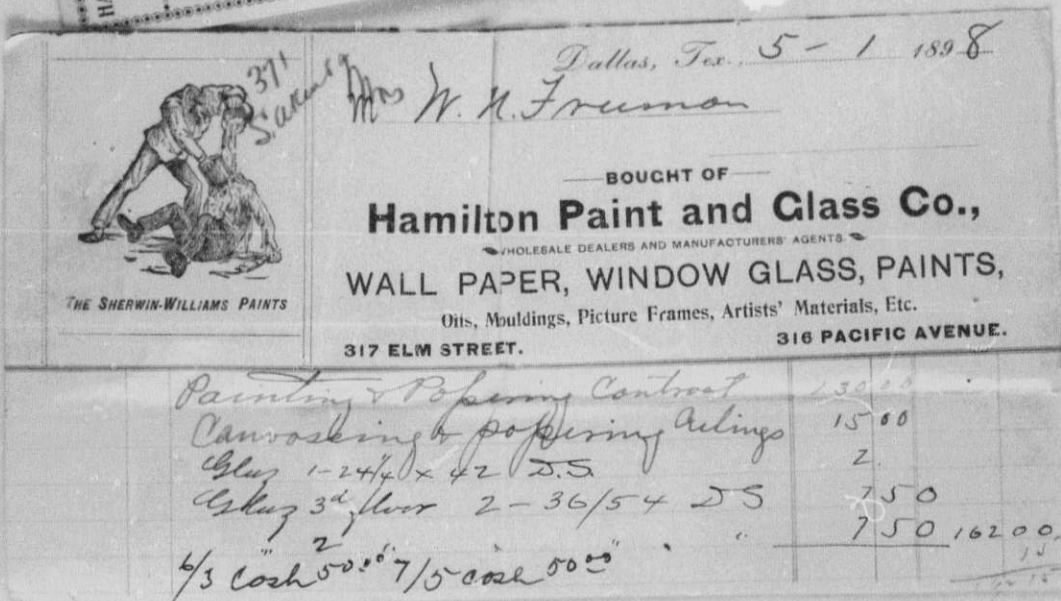 HA
Dallas, Tex., 5 - 1 1898
371
Mrs W. H. Freeman
BOUGHT OF
Hamilton Paint and Glass Co.,
WHOLESALE DEALERS AND MANUFACTURERS' AGENTS
WALL PAPER, WINDOW GLASS, PAINTS,
Oils, Mouldings, Picture Frames, Artists' Materials, Etc.
317 ELM STREET. 316 PACIFIC AVENUE.
THE SHERWIN-WILLIAMS PAINTS
Painting & Papering Contract 130 00
Canvassing & papering Ceilings 15 00
Glaz 1-24/40 x 42 D.S. 2.
Glaz 3d floor 2 - 36/54 DS 7 50
" 2 " " 7 50 162 00
6/3 Cash 50 00 7/5 cash 50 00